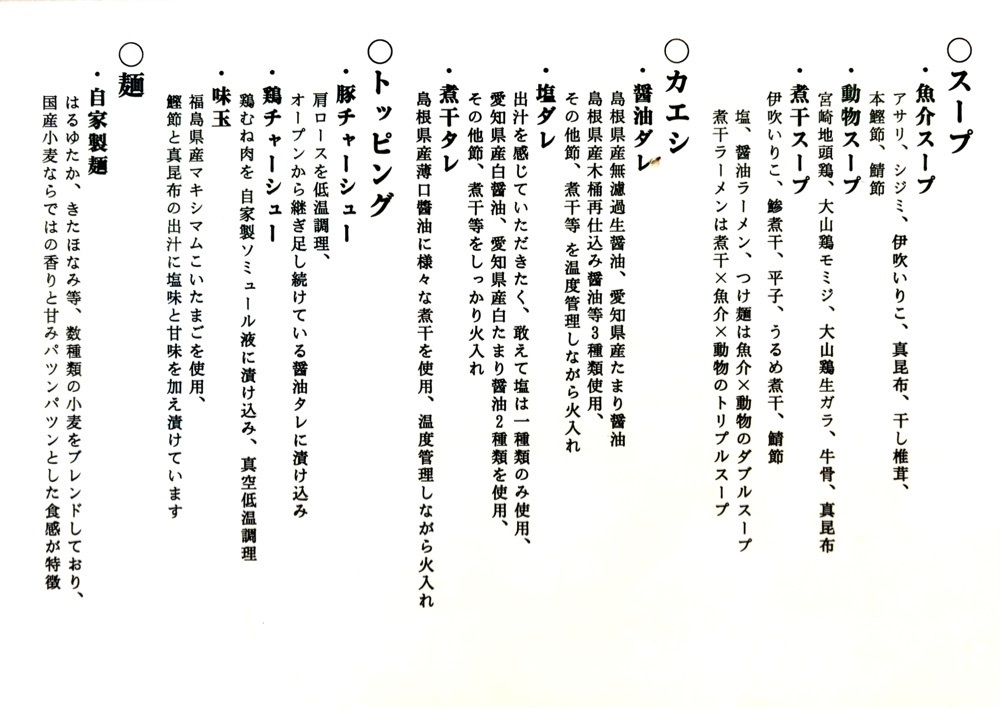 ○スープ
・魚介スープ
アサリ、シジミ、伊吹いりこ、真昆布、干し椎茸、
本鰹節、鯖節
・動物スープ
宮崎地頭鶏、大山鶏モミジ、大山鶏生ガラ、牛骨、真昆布
・煮干スープ
伊吹いりこ、鯵煮干、平子、うるめ煮干、鯖節
塩、醤油ラーメン、つけ麺は魚介×動物のダブルスープ
煮干ラーメンは煮干×魚介×動物のトリプルスープ
○カエシ
・醤油ダレ
島根県産無濾過生醤油、愛知県産たまり醤油
島根県産木桶再仕込み醤油等3種類使用、
その他節、煮干等 を温度管理しながら火入れ
・塩ダレ
出汁を感じていただきたく、敢えて塩は一種類のみ使用、
愛知県産白醤油、愛知県産白たまり醤油2種類を使用、
その他節、煮干等をしっかり火入れ
・煮干タレ
島根県産薄口醤油に様々な煮干を使用、温度管理しながら火入れ
○トッピング
・豚チャーシュー
肩ロースを低温調理、
オープンから継ぎ足し続けている醤油タレに漬け込み
・鶏チャーシュー
鶏むね肉を 自家製ソミュール液に漬け込み、真空低温調理
・味玉
福島県産マキシマムこいたまごを使用、
鰹節と真昆布の出汁に塩味と甘味を加え漬けています
○麺
・自家製麺
はるゆたか、きたほなみ等、数種類の小麦をブレンドしており、
国産小麦ならではの香りと甘みパツンパツンとした食感が特徴